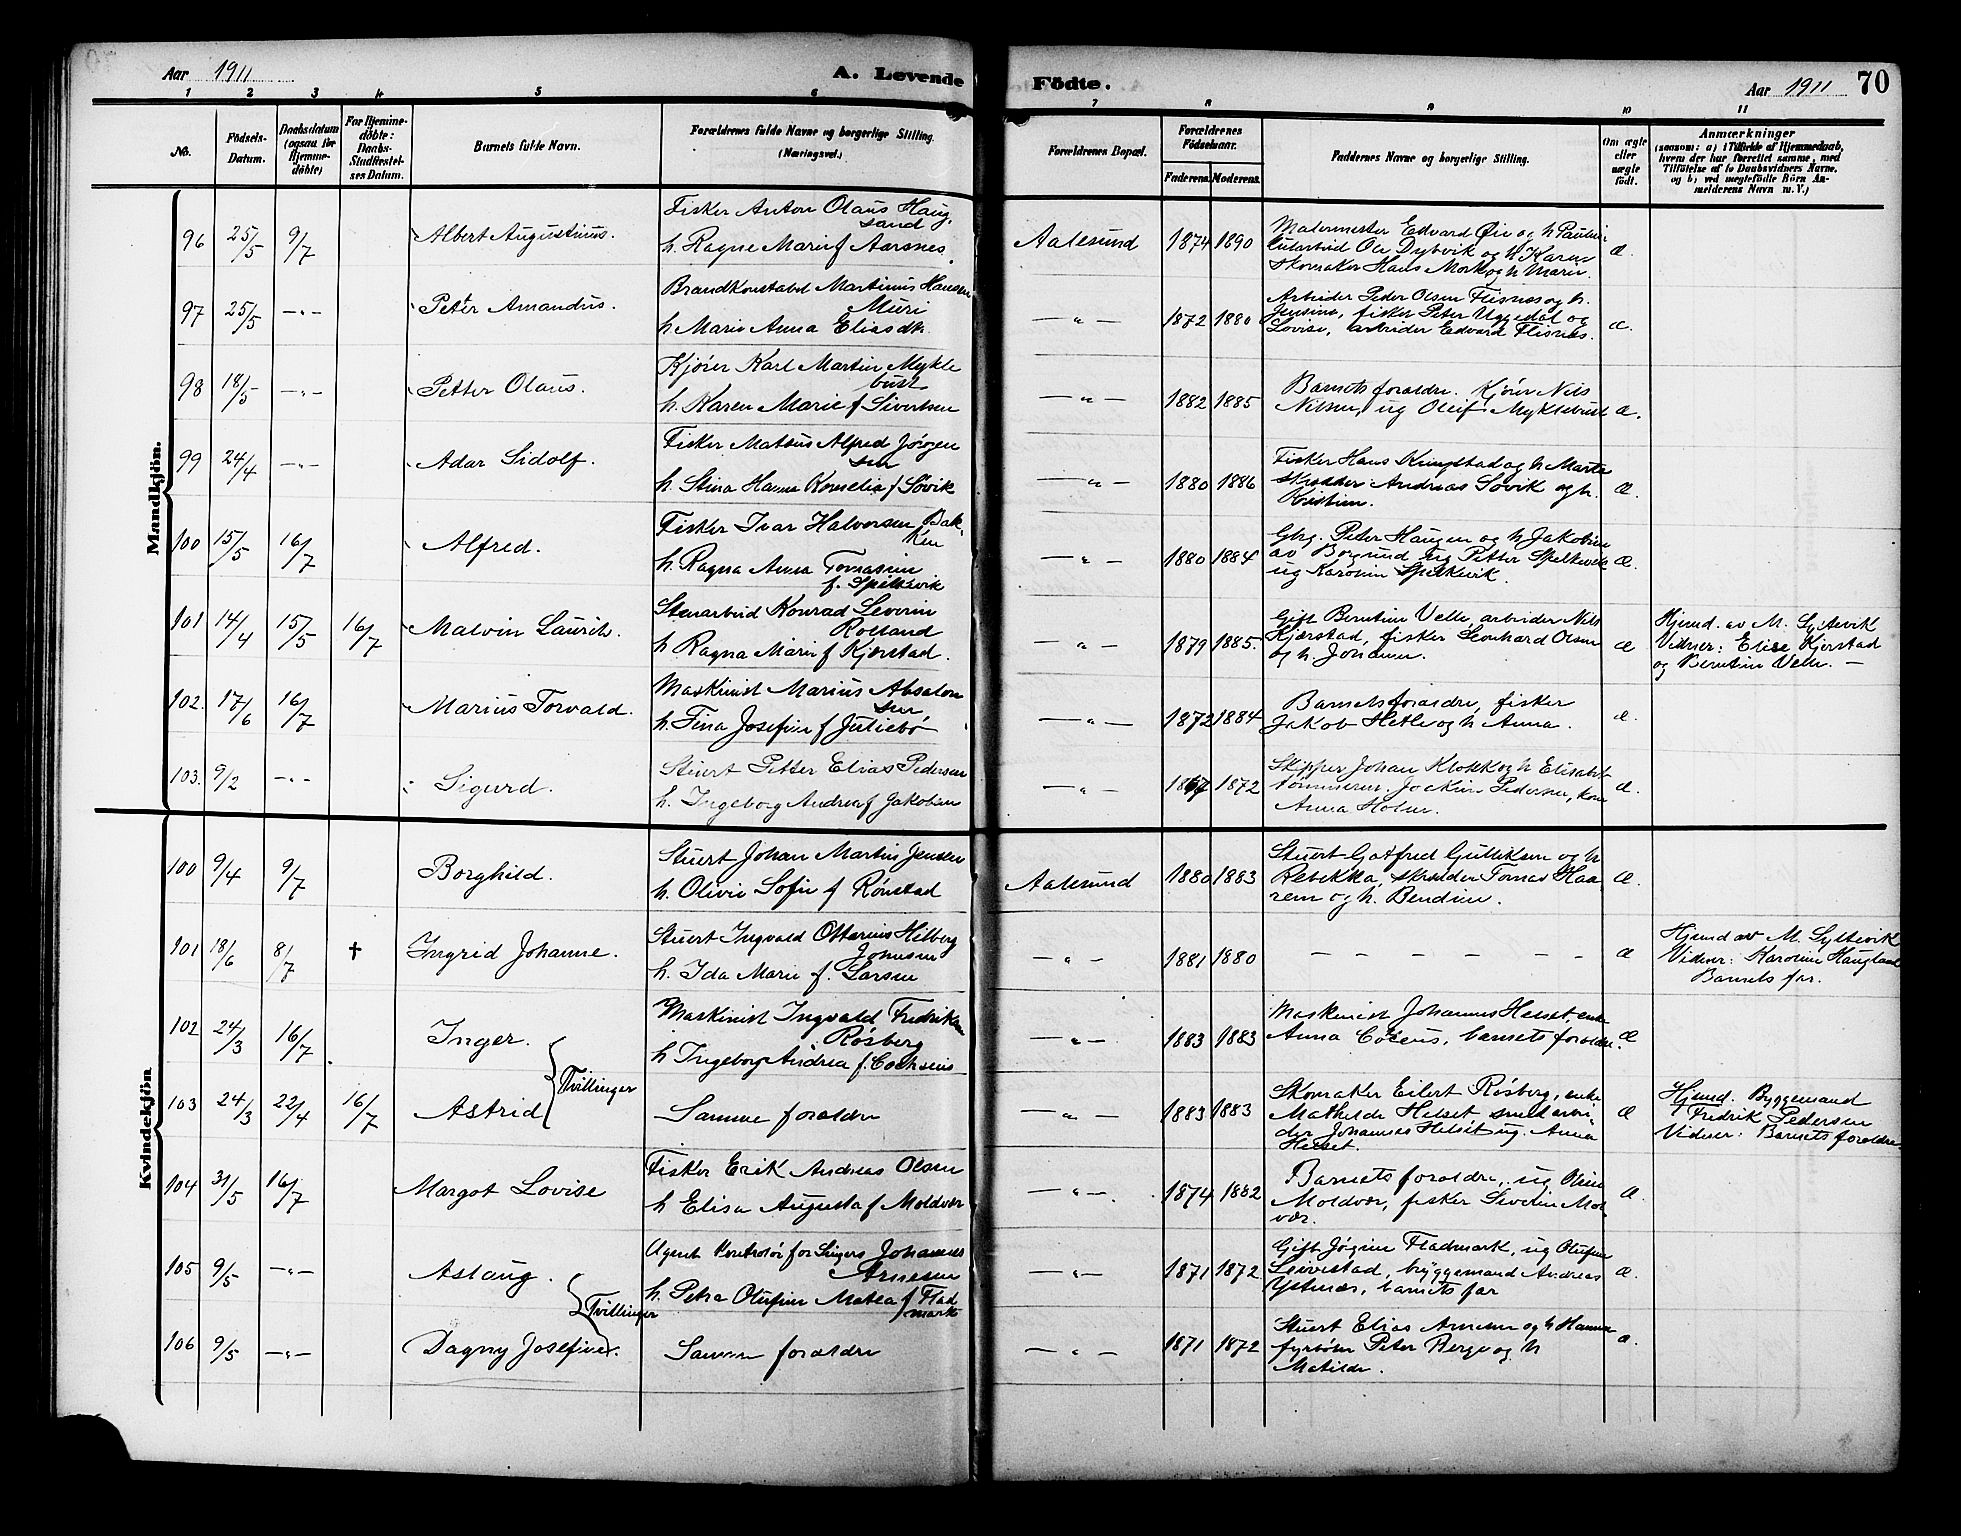 Aar 1911
A. Levende
Födte.
Aar 1911
70
1 2 3 4 5 6 7 8 9 10 11
No.
Födsels-
Datum.
Daabsdatum
(ogsaa for
Hjemme-
döbte)
For Hjemme-
döbte:
Daabs-
Stadfæstel-
ses Datum.
Barnets fulde Navn.
Forældrenes fulde Navne og borgerlige Stilling.
(Næringsvei.)
Forældrenes Bopæl.
Forældrenes
Födselsaar.
Faderens. Moderens.
Faddernes Navne og borgerlige Stilling.
Om ægte
eller
uægte
födt.
Anmærkninger
(saasom: a) i Tilfælde af Hjemmedaab,
hvem der har forrettet samme, med
Tilföielse af to Daabsvidners Navne,
og b) ved uægtefödte Börn An-
melderens Navn m. V.)
Mandkjön.
96 25/5 9/7 Albert Augustinus.
Fisker Anton Olaus Haug
sand
h. Ragne Marie f Aarsnes.
Aalesund 1874 1890
Malermester Edvard Øie og h Pauline
Ole Dybvik og h Karen
Skomaker Hans Mork og h Marie.
æ.
97 25/5 -"- Petter Amandus.
Brandkonstabel Martinus Hansen
Muri
h Marie Anna Eliasdtr.
-"- 1872 1880
Arbeider Peder Olsen Flisnes og h.
Jensine, fisker Peter Uggedal og
Lovise, arbeider Edvard Flisnes.
æ.
98 18/5 -"- Petter Olaus.
Kjører Karl Martin Mykle
bust
h. Karen Marie f Sivertsen
-"- 1882 1885
Barnets forældre. Kjører Nils
Nilsen, ug Oleif Myklebust
æ.
99 24/4 -"- Adar Sidolf.
Fisker Mateus Alfred Jørgen
sen
h. Stina Hanna Kornelia f Søvik
-"- 1880 1886
Fisker Hans og h Marte
skrædder Andreas Søvik og h.
Kristine.
æ.
100 15/5 16/7 Alfred.
Fisker Ivar Halvorsen Bak-
ken
h. Ragna Anna Tomasine
f. Spelkevik
-"- 1880 1884
Gbrg. Peter Haugen og h Jakobine
av Borgund ug Petter Spelkevik
ug Karoline Spelkevik.
æ
101 14/4 15/5 16/7 Malvin Laurits.
Stenarbeid Konrad Severin
Rolland
h Ragna Marie f Kjærstad.
-"- 1879 1885.
Gift Berntine Velle, arbeider Nils
Kjærstad, fisker Leonhard Olsen
og h. Johanne.
æ
Hjemd. av M. Syltevik
Vidner: Elise Kjerstad
og Berntine Velle. –
102. 17/6 16/7 Marius Torvald.
Maskinist Marius Absalon
sen
h. Tina Josefine f Juliebø
-"- 1872 1884
Barnets forældre, fisker
Jakob Hetle og h Anna.
æ.
103. 9/2 -"- Sigurd.
Stuert Petter Elias Pedersen
h. Ingeborg Andrea f Jakobsen
-"- 1867 1872
Skipper Johan Klokk og h Elisabet
tømmerm. Jockim Pedersen, kone
Anna Holm.
æ.
Kvindekjön
100 9/4 9/7 Borghild.
Stuert Johan Martin Jensen
h. Olivie Sofie f Rønstad
Aalesund 1880 1883
Stuert Gotfred Gulliksen og h
Rebekka, skrædder Tomas Haa
rem og h. Bendine.
æ.
101 18/6 8/7 † Ingrid Johanne.
Stuert Ingvald Ottarius Hilberg
Johnsen
h. Ida Marie f. Larsen
-"- 1881 1880
– – – – – –
æ
Hjemd av M. Syltevik
Vidner: Karoline Haugland
Barnets far.
102 24/3 16/7 Inger.
Maskinist Ingvald Fredriksen
Røsberg
h Ingeborg Andrea f. Cocheus
-"- 1883 1883
Maskinist Johannes Helset, enke
Anna Coceus, barnets forældre.
æ.
Tvillinger
103 24/3 22/4 16/7 Astrid
Samme forældre
-"- 1883 1883
Skomaker Eilert Røsberg, enke
Mathilde Helset smedarbei
der Johannes Helset ug. Anna
Helset.
æ
Hjemd. Byggemand
Fredrik Pedersen
Vidner: Barnets forældre
104 31/5 16/7 Margot Lovise
Fisker Erik Andreas Olsen
h Elisa Augusta f Moldvær
-"- 1874 1882
Barnets forældre, ug Oline
Moldvær, fisker Severin Mol
vær.
æ.
105 9/5 -"- Aslaug.
Agent Kontrolør for Singers Johannes
Arnesen
h. Petra Olufine Matea f Flad
mark
-"- 1871 1872
Gift Jørgine Fladmark, ug Olufine
Leivestad, byggemand Andreas
Ystenes, barnets far
æ.
Tvillinger
106 9/5 -"- Dagny Josefine.
Samme forældre
-"- 1871 1872
Stuert Elias Arnesen og h Hanna
fyrbøter Peter Berge og h
Matilde.
æ.